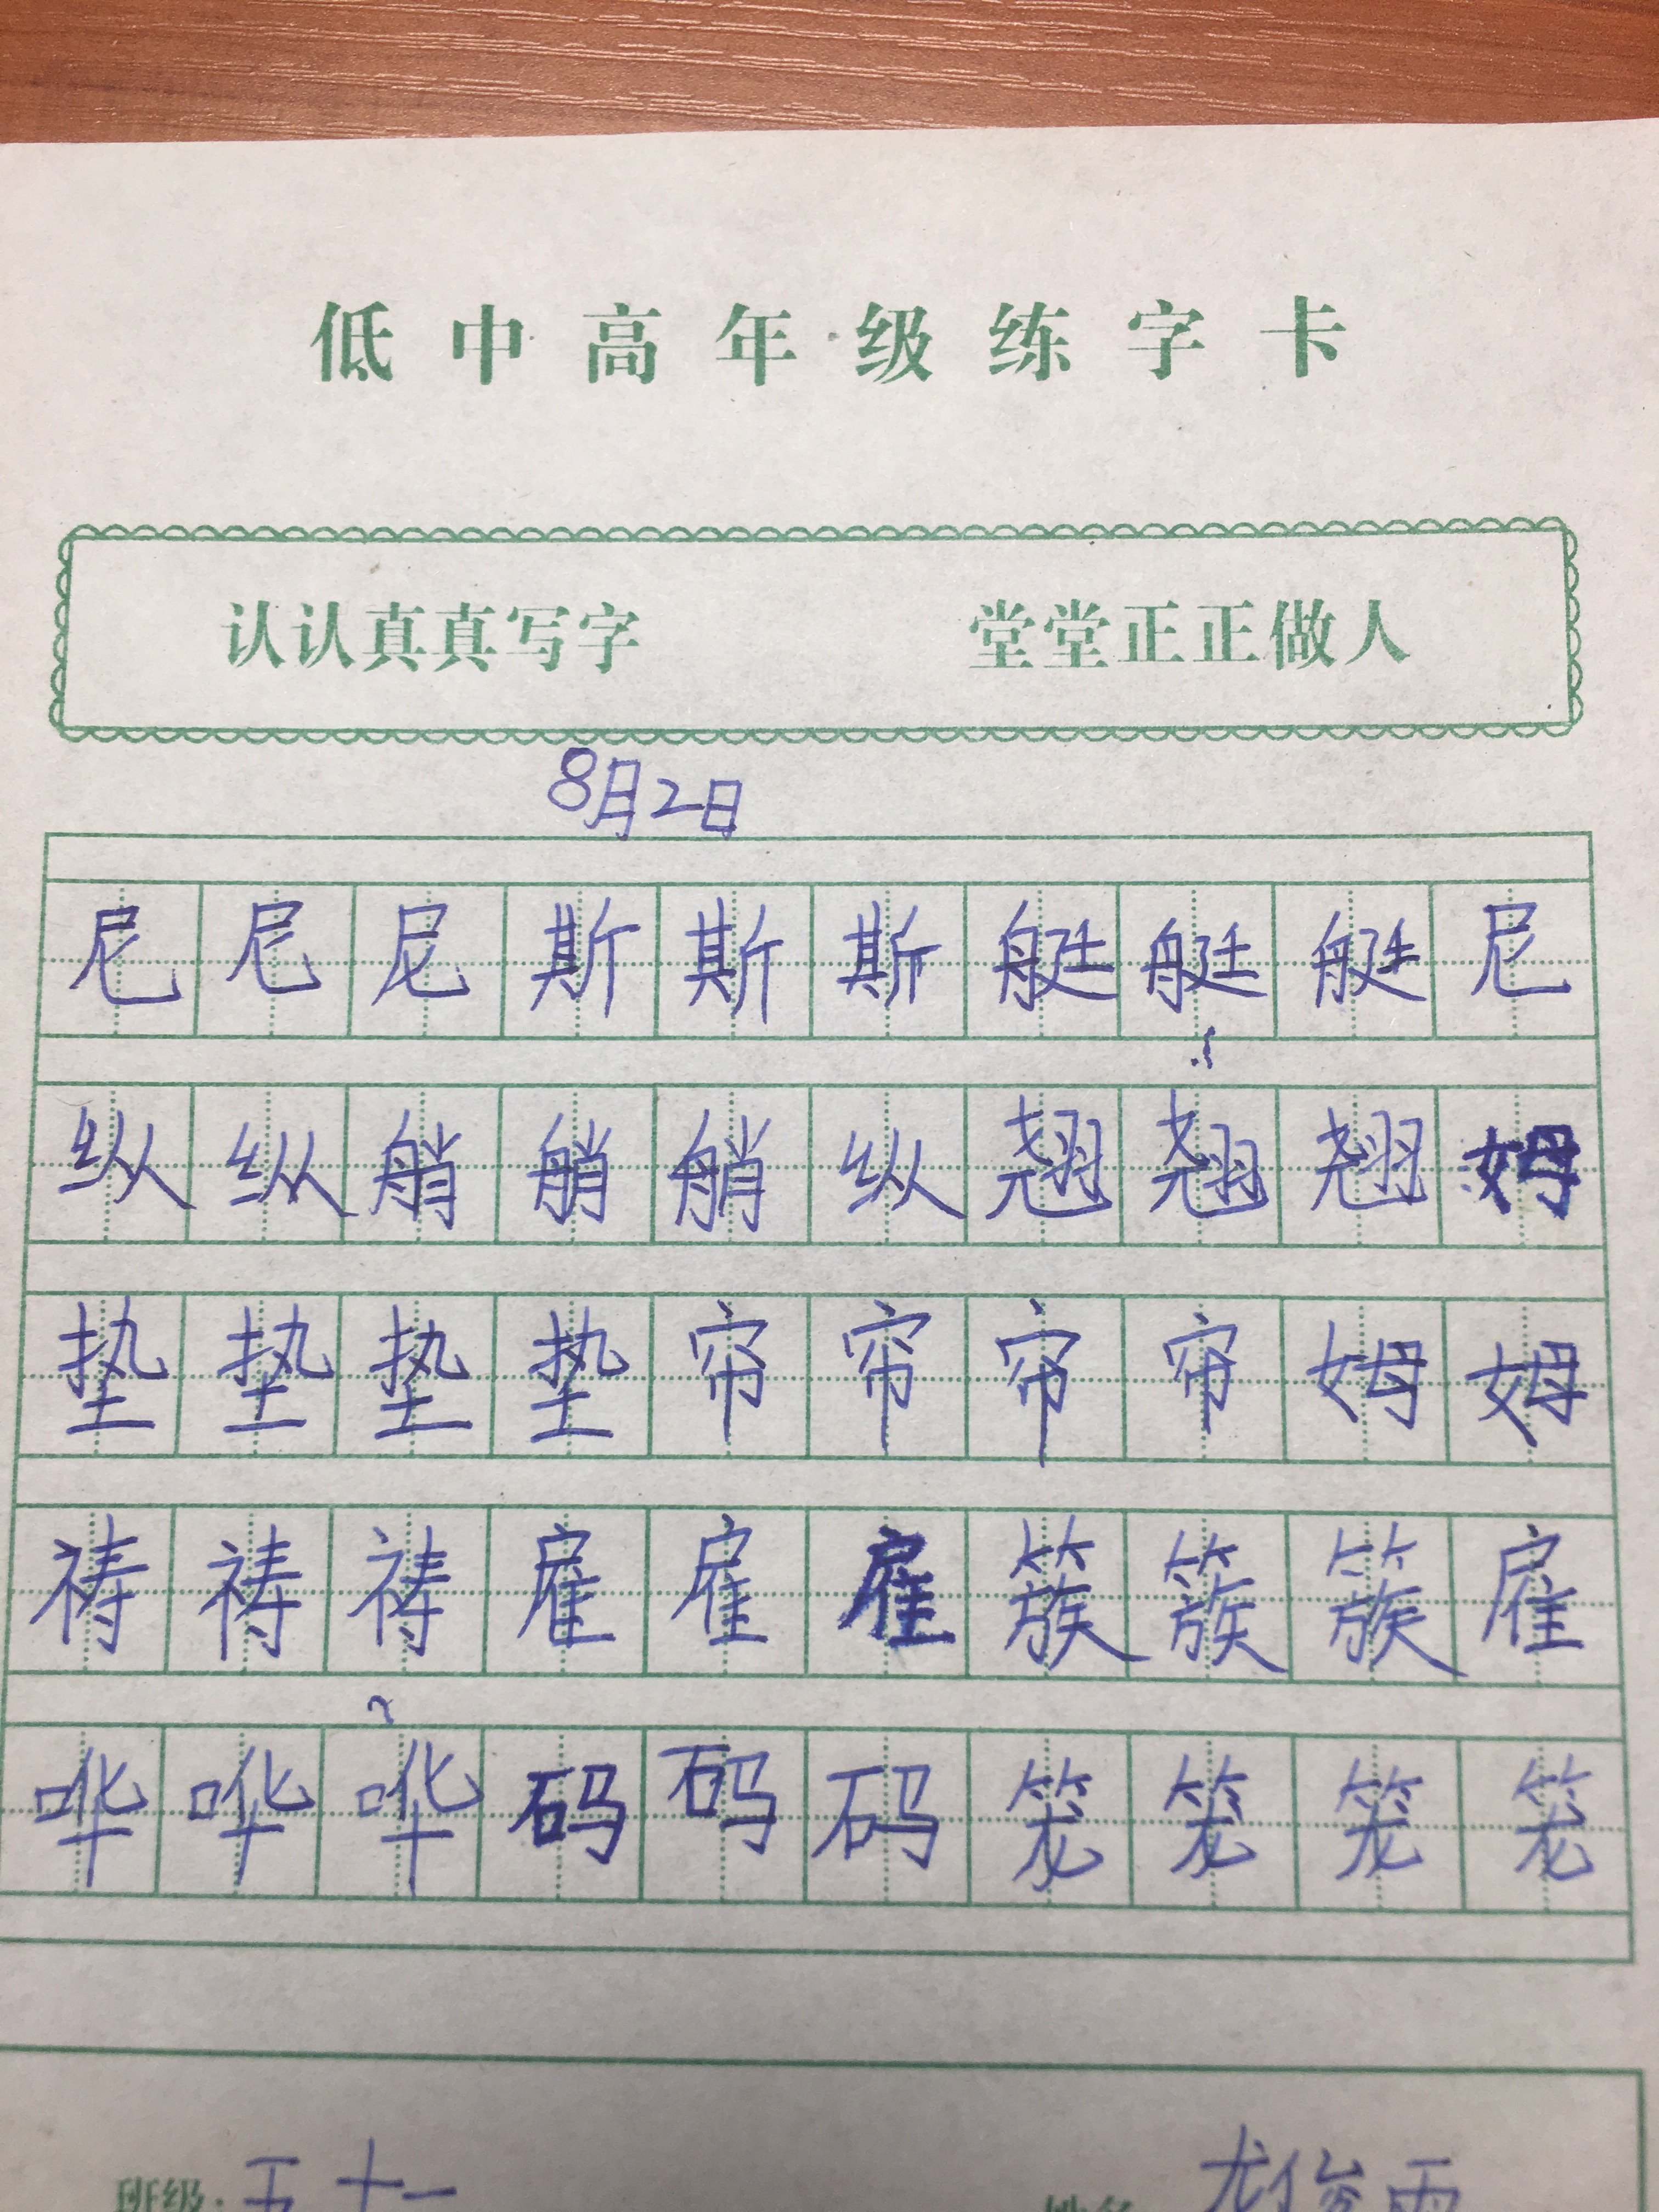 低中高年级练字卡
认认真真写字 堂堂正正做人
8月2日
尼尼尼斯斯斯艇艇艇尼
纵纵艄艄艄纵翘翘翘姆
垫垫垫垫帘帘帘帘姆姆
祷祷祷雇雇雇簇簇簇雇
哗哗哗码码码笼笼笼笼
班级:五十一 姓名